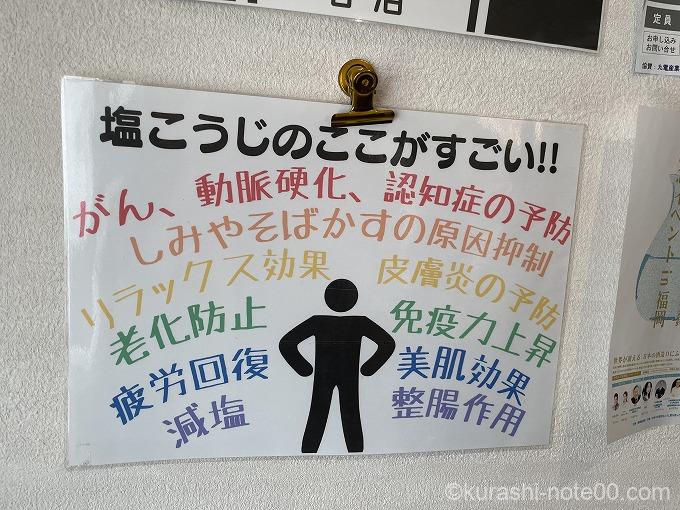 塩こうじのここがすごい!!
がん、動脈硬化、認知症の予防
しみやそばかすの原因抑制
リラックス効果 皮膚炎の予防
老化防止 免疫力上昇
疲労回復 美肌効果
減塩 整腸作用
定員
お申し込み
お問い合せ
イベント in 福岡
©kurashi-note00.com